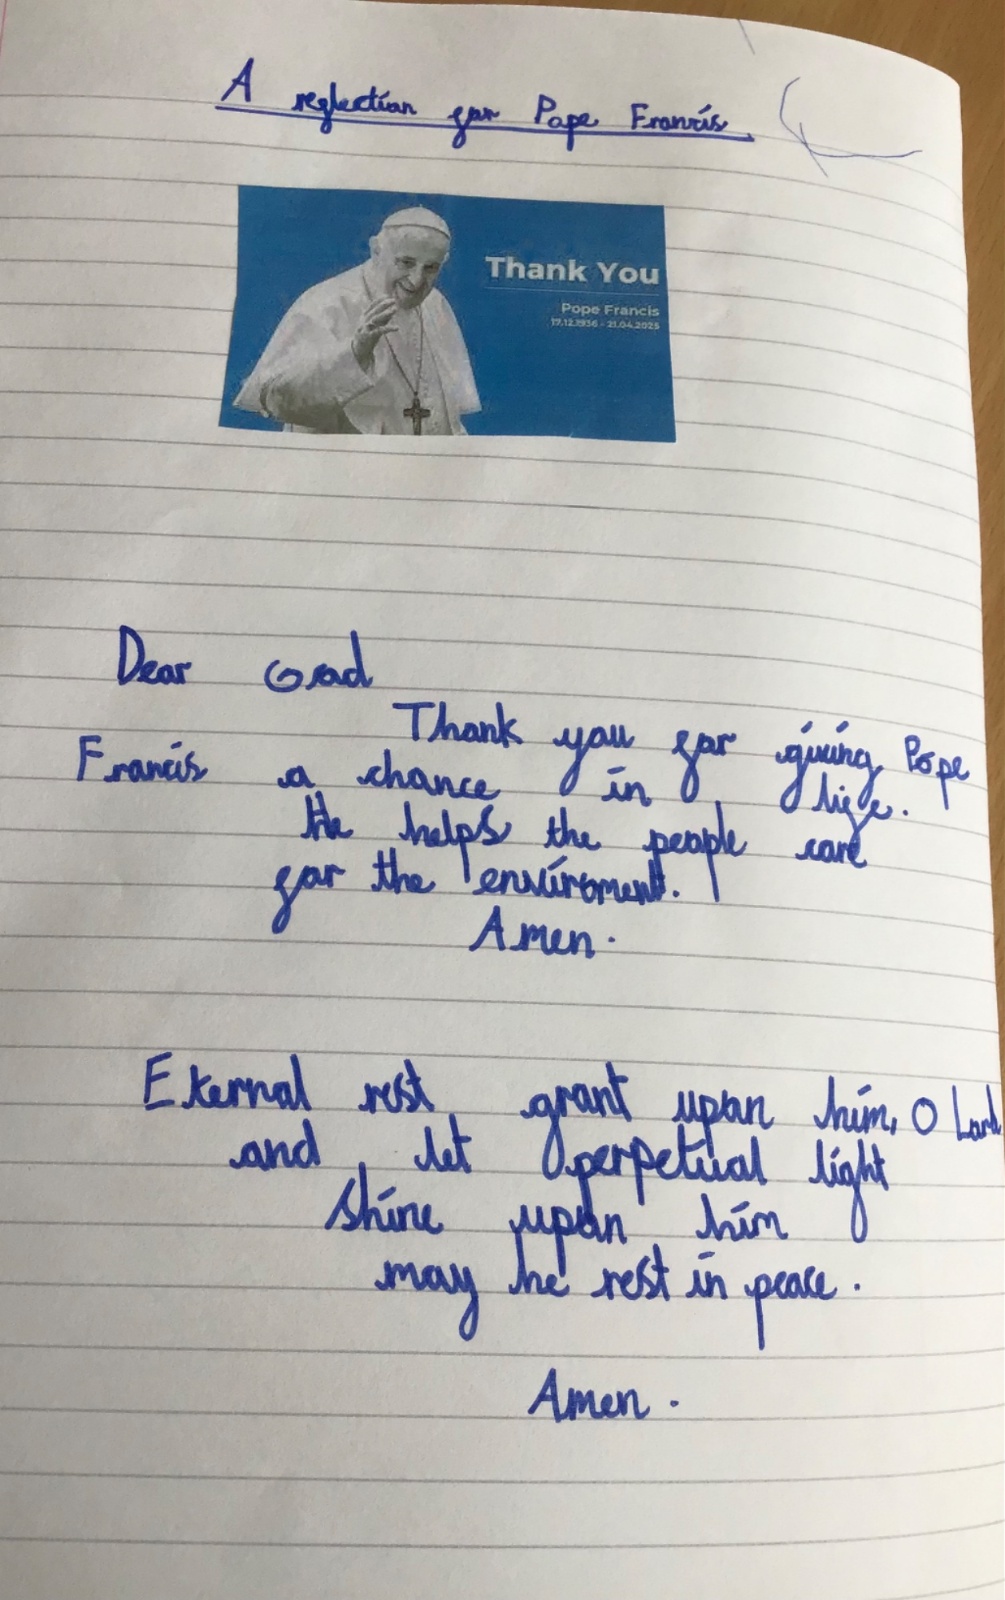 A reflection for Pope Francis
Thank You
Pope Francis
17.12.1936 - 21.04.2025
Dear God
Thank you for giving Pope
Francis a chance in life.
He helps the people care
for the enviroment.
Amen.
Eternal rest grant upon him, O Lord
and let perpetual light
shine upon him
may he rest in peace.
Amen.